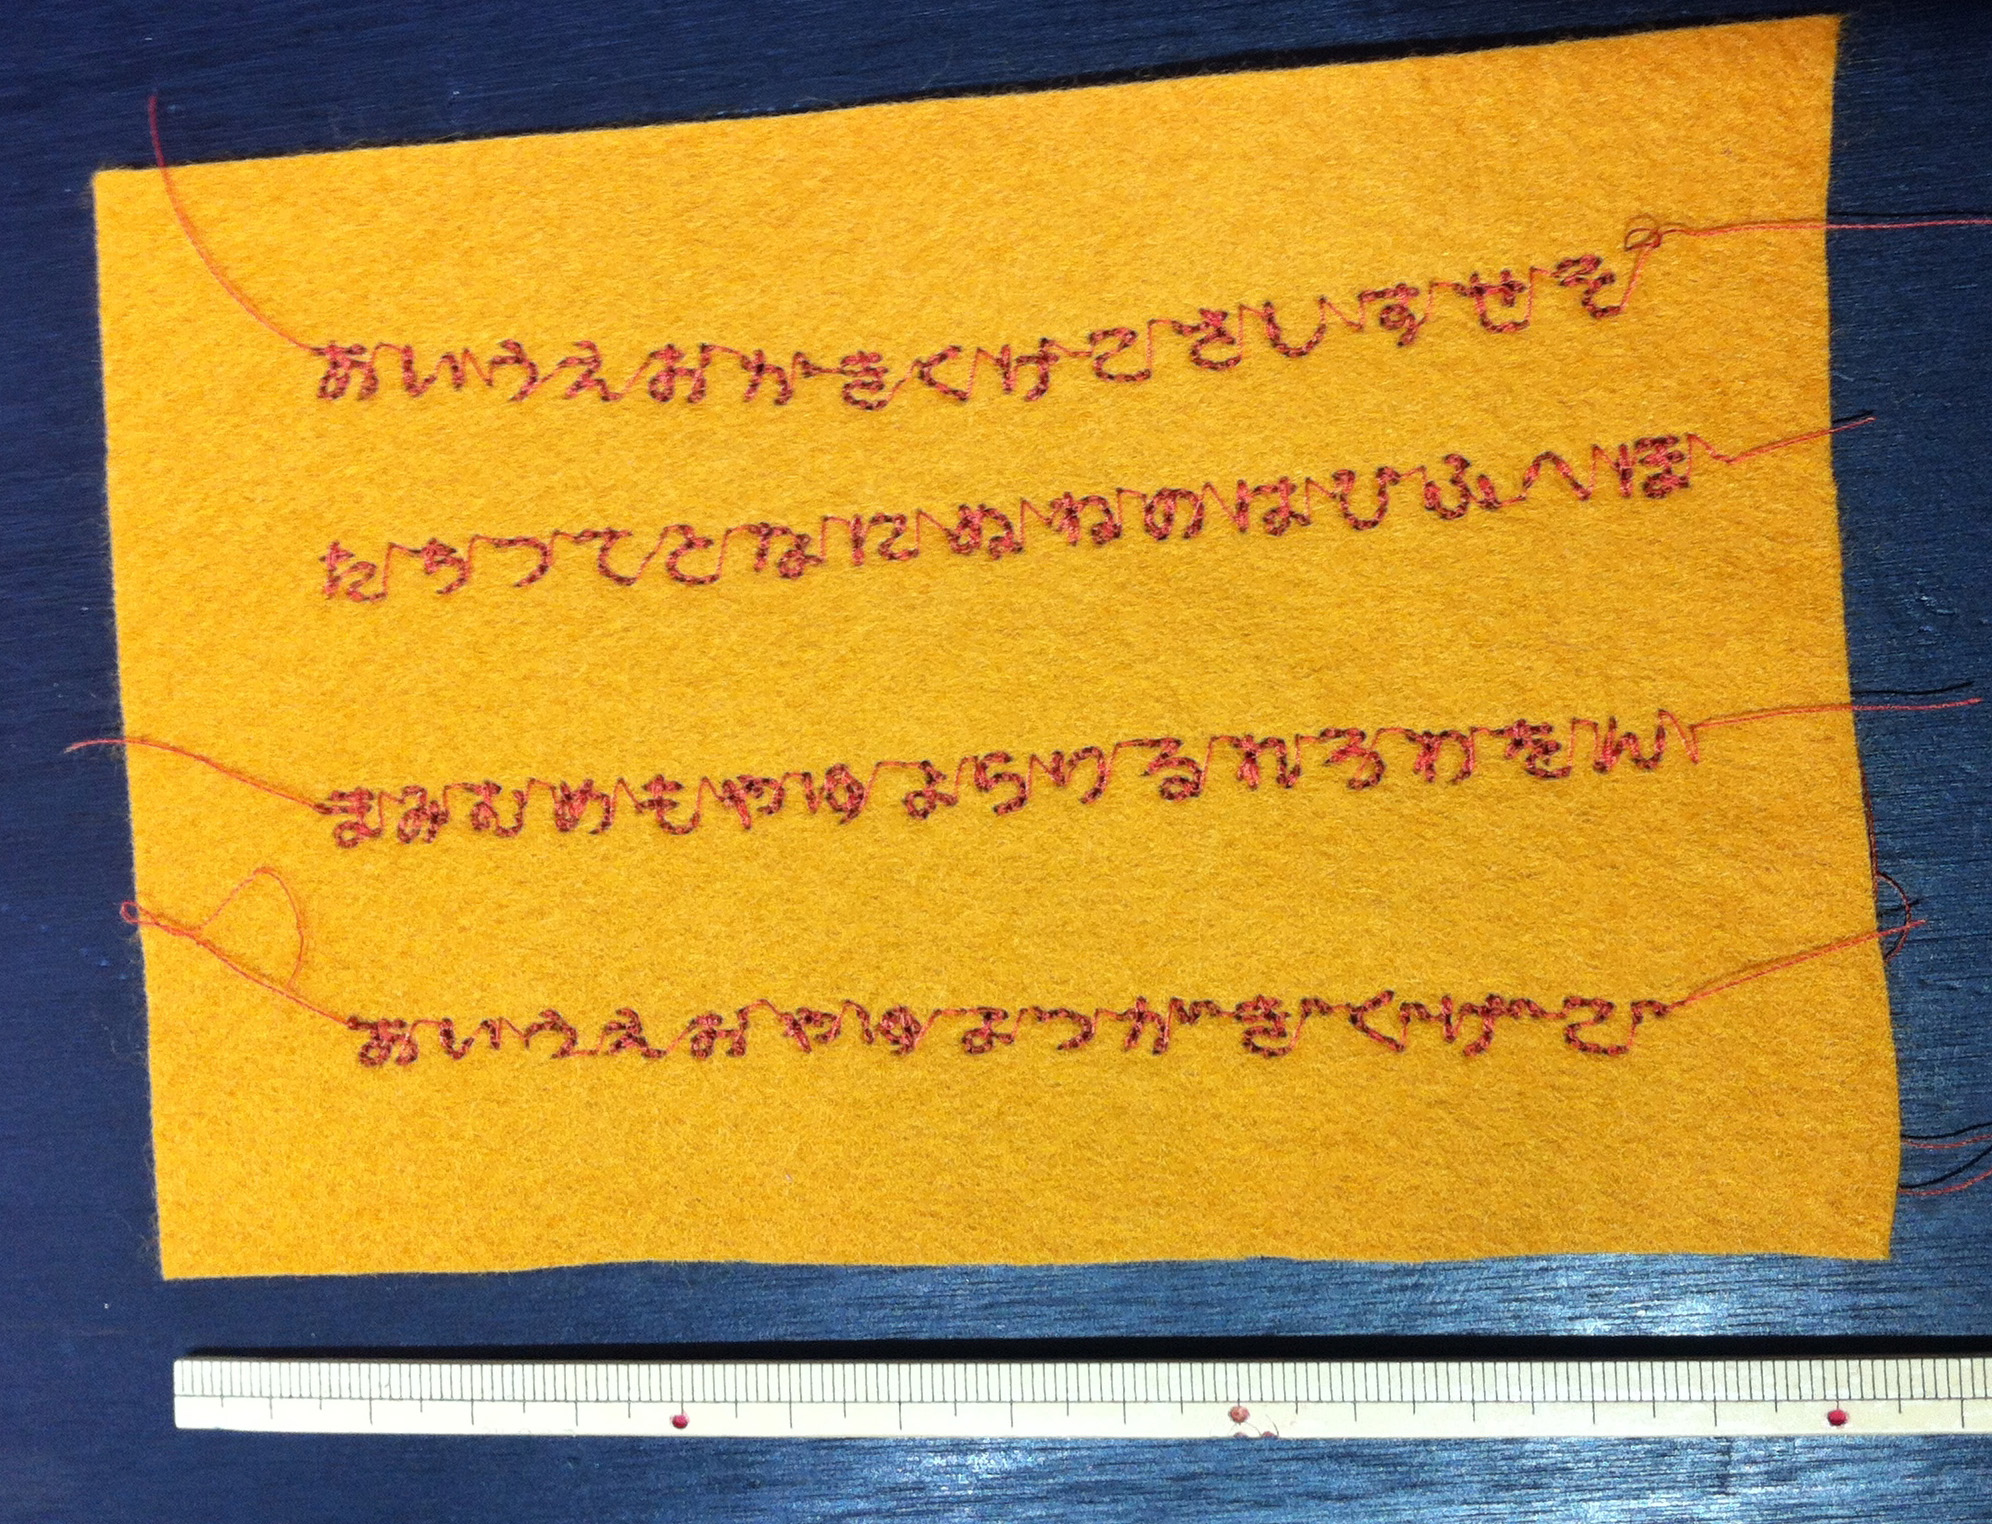 あいうえおかきくけこさしすせそ
たちつてとなにぬねのはひふへほ
まみむめもやゆよらりるれろわをん
あいうえおやゆよつかきくけこ